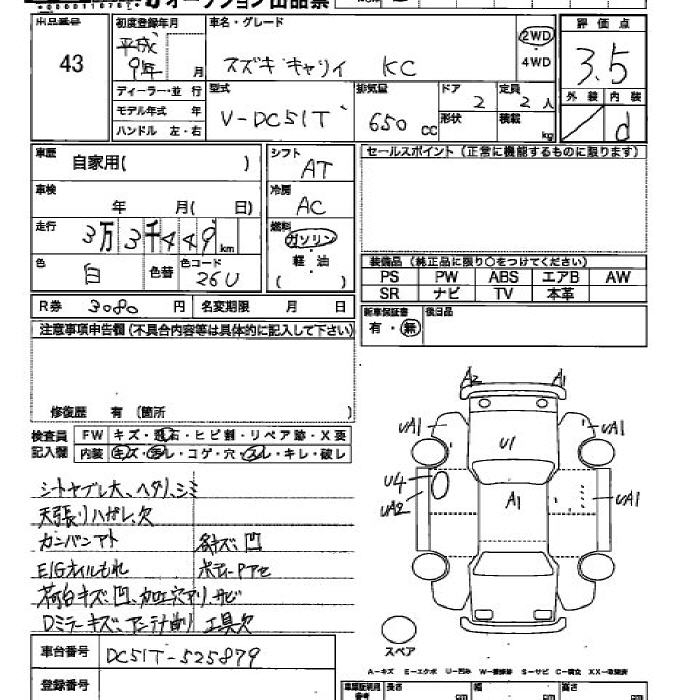 オークション出品票
出品番号 43
初度登録年月 平成9年 月
車名・グレード スズキ キャリイ KC
2WD ・ 4WD
評価点 3.5
外装 / 内装 d
ディーラー・並行
モデル年式 年
ハンドル 左・右
型式 V-DC51T
排気量 650 CC
ドア 2 形状
定員 2人 積載 kg
車歴 自家用( )
シフト AT
セールスポイント (正常に機能するものに限ります)
車検 年 月( 日)
冷房 AC
走行 3万3千449km
燃料 ガソリン ・ 軽油 ( )
色 白 色替 色コード 26U
装備品 (純正品に限り○をつけてください)
PS PW ABS エアB AW
SR ナビ TV 本革
R券 3080 円 名変期限 月 日
新車保証書 有・無 後日品
注意事項申告欄(不具合内容等は具体的に記入して下さい)
修復歴 有 (箇所 )
検査員記入欄 FW キズ・飛石・ヒビ割・リペア跡・X要
内装 キズ・汚レ・コゲ・穴・スレ・キレ・破レ
シートヤブレ大、ヘタリ、シミ
天張りハガレ、欠
カンバンアト 各キズ、凹
E/Gオイルもれ ボディーPアセ
荷台キズ、凹、加工穴アリ、サビ
Dミラーキズ、アンテナ曲り 工具欠
A2 A1
UA1 U1 UA1
U4 UA2 A1 UA1
スペア
A－キズ E－エクボ U－凹み S－サビ C－腐食 XX－取替済
車台番号 DC51T-525879
登録番号
長さ cm 幅 cm 高さ cm